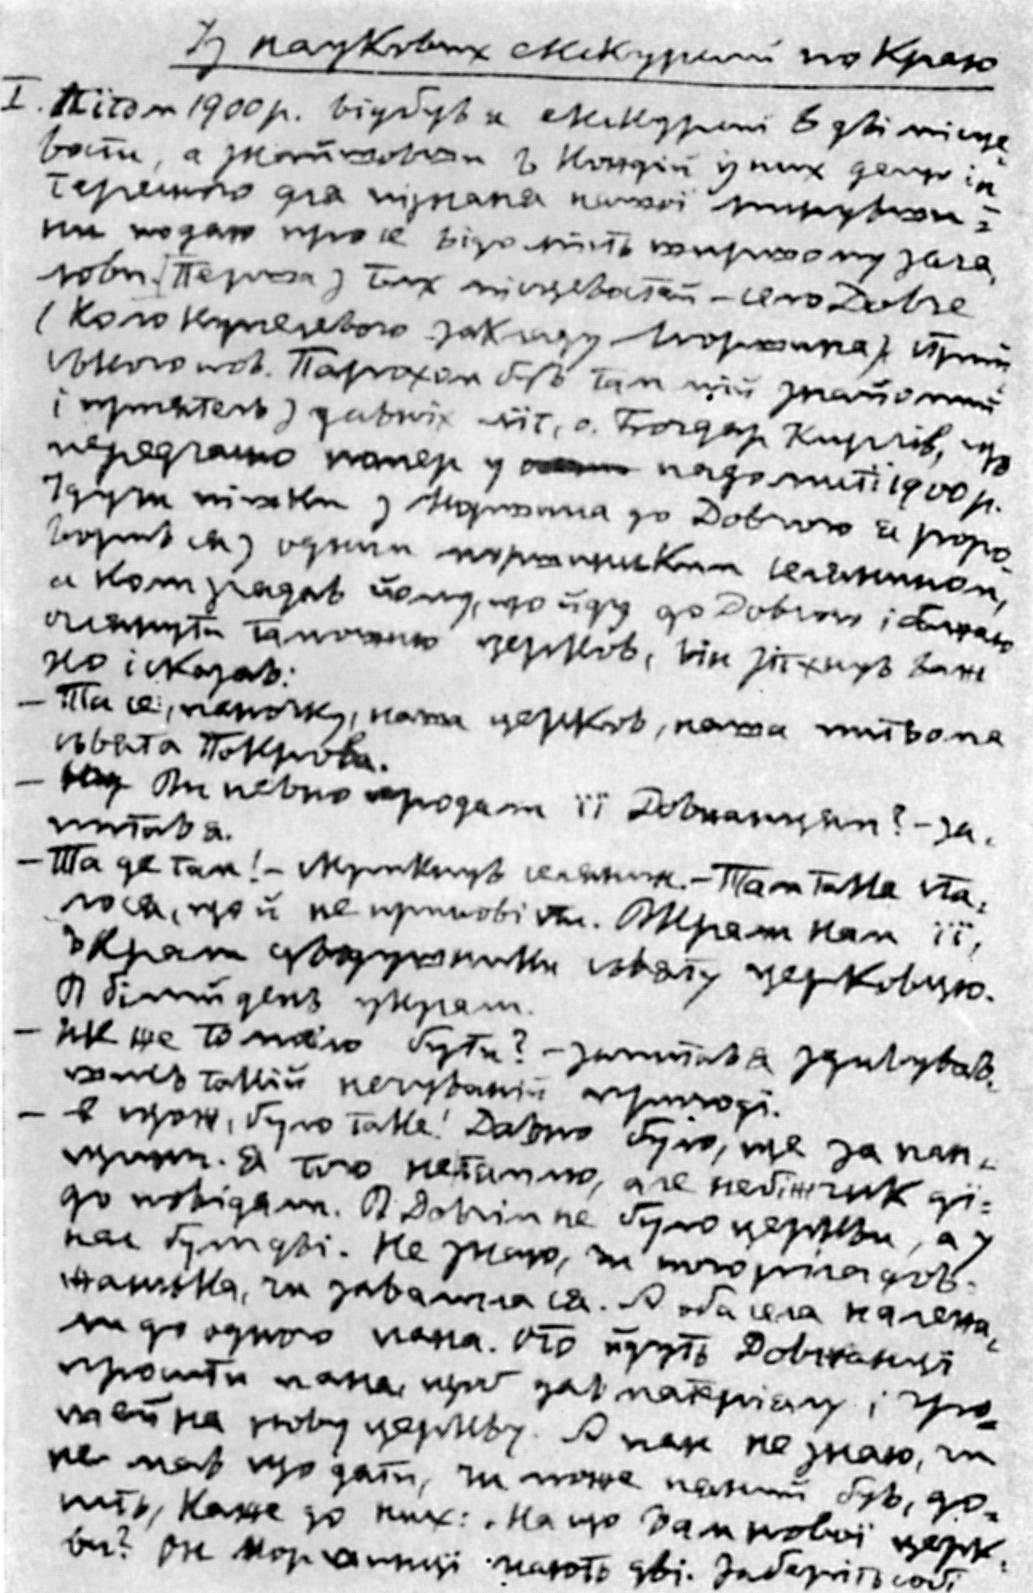 Із наукових екскурсий по Краю
I. Літом 1900 р. відбув я екскурсиї в дві місце-
вости, а знайшовши в Кождій із них дещо ін-
тересного для пізнаня нашої минувши-
ни подаю про се відомість ширшому зага-
лови. Перша з тих місцевостей – село Довге
(Коло Купелевого закладу Моршина) Стрий-
ського пов. Парохом був там мій знайомий
і приятель з давніх літ, о. Богдар Кирчів, що
передчасно помер у падолисті 1900 р.
Ідучи пішки з Моршина до Довгого я розго-
ворив ся з одним моршинським селянином,
а коли згадав йому, що йду до Довгого і бажаю
оглянути тамошню церков, він зітхнув важ-
ко і сказав:
– Та се, паночку, наша церков, наша питома
сьвята Покрова.
– Ви певно продали її Довжанцям? – за-
питав я.
– Та де там! – скрикнув селянин. – Там таке ста-
лося, що й не приповісти. Вкрали нам її,
вкрали сьвятую церковцю.
В білий день украли.
– Як же то могло бути? – запитав я здивував-
шись такій нечуваній пригоді.
– А щож, було таке! Давно було, ще за пан-
щини. Я того не тямлю, але небіжчик дї-
до повідали. В Довгім не було церкви, а у
нас були дві. Не знаю, чи погоріла дов-
жанська, чи завалила ся. А оба села належа-
ли до одного пана. Ото йдуть Довжанцї
просити пана, щоб дав материялу і гро-
шей на нову церкву. А пан не знаю, чи
не мав що дати, чи може пяний був, до-
сить, Каже до них: "На що вам нової церк-
ви? Он Моршинцї мають дві. Заберіть собі